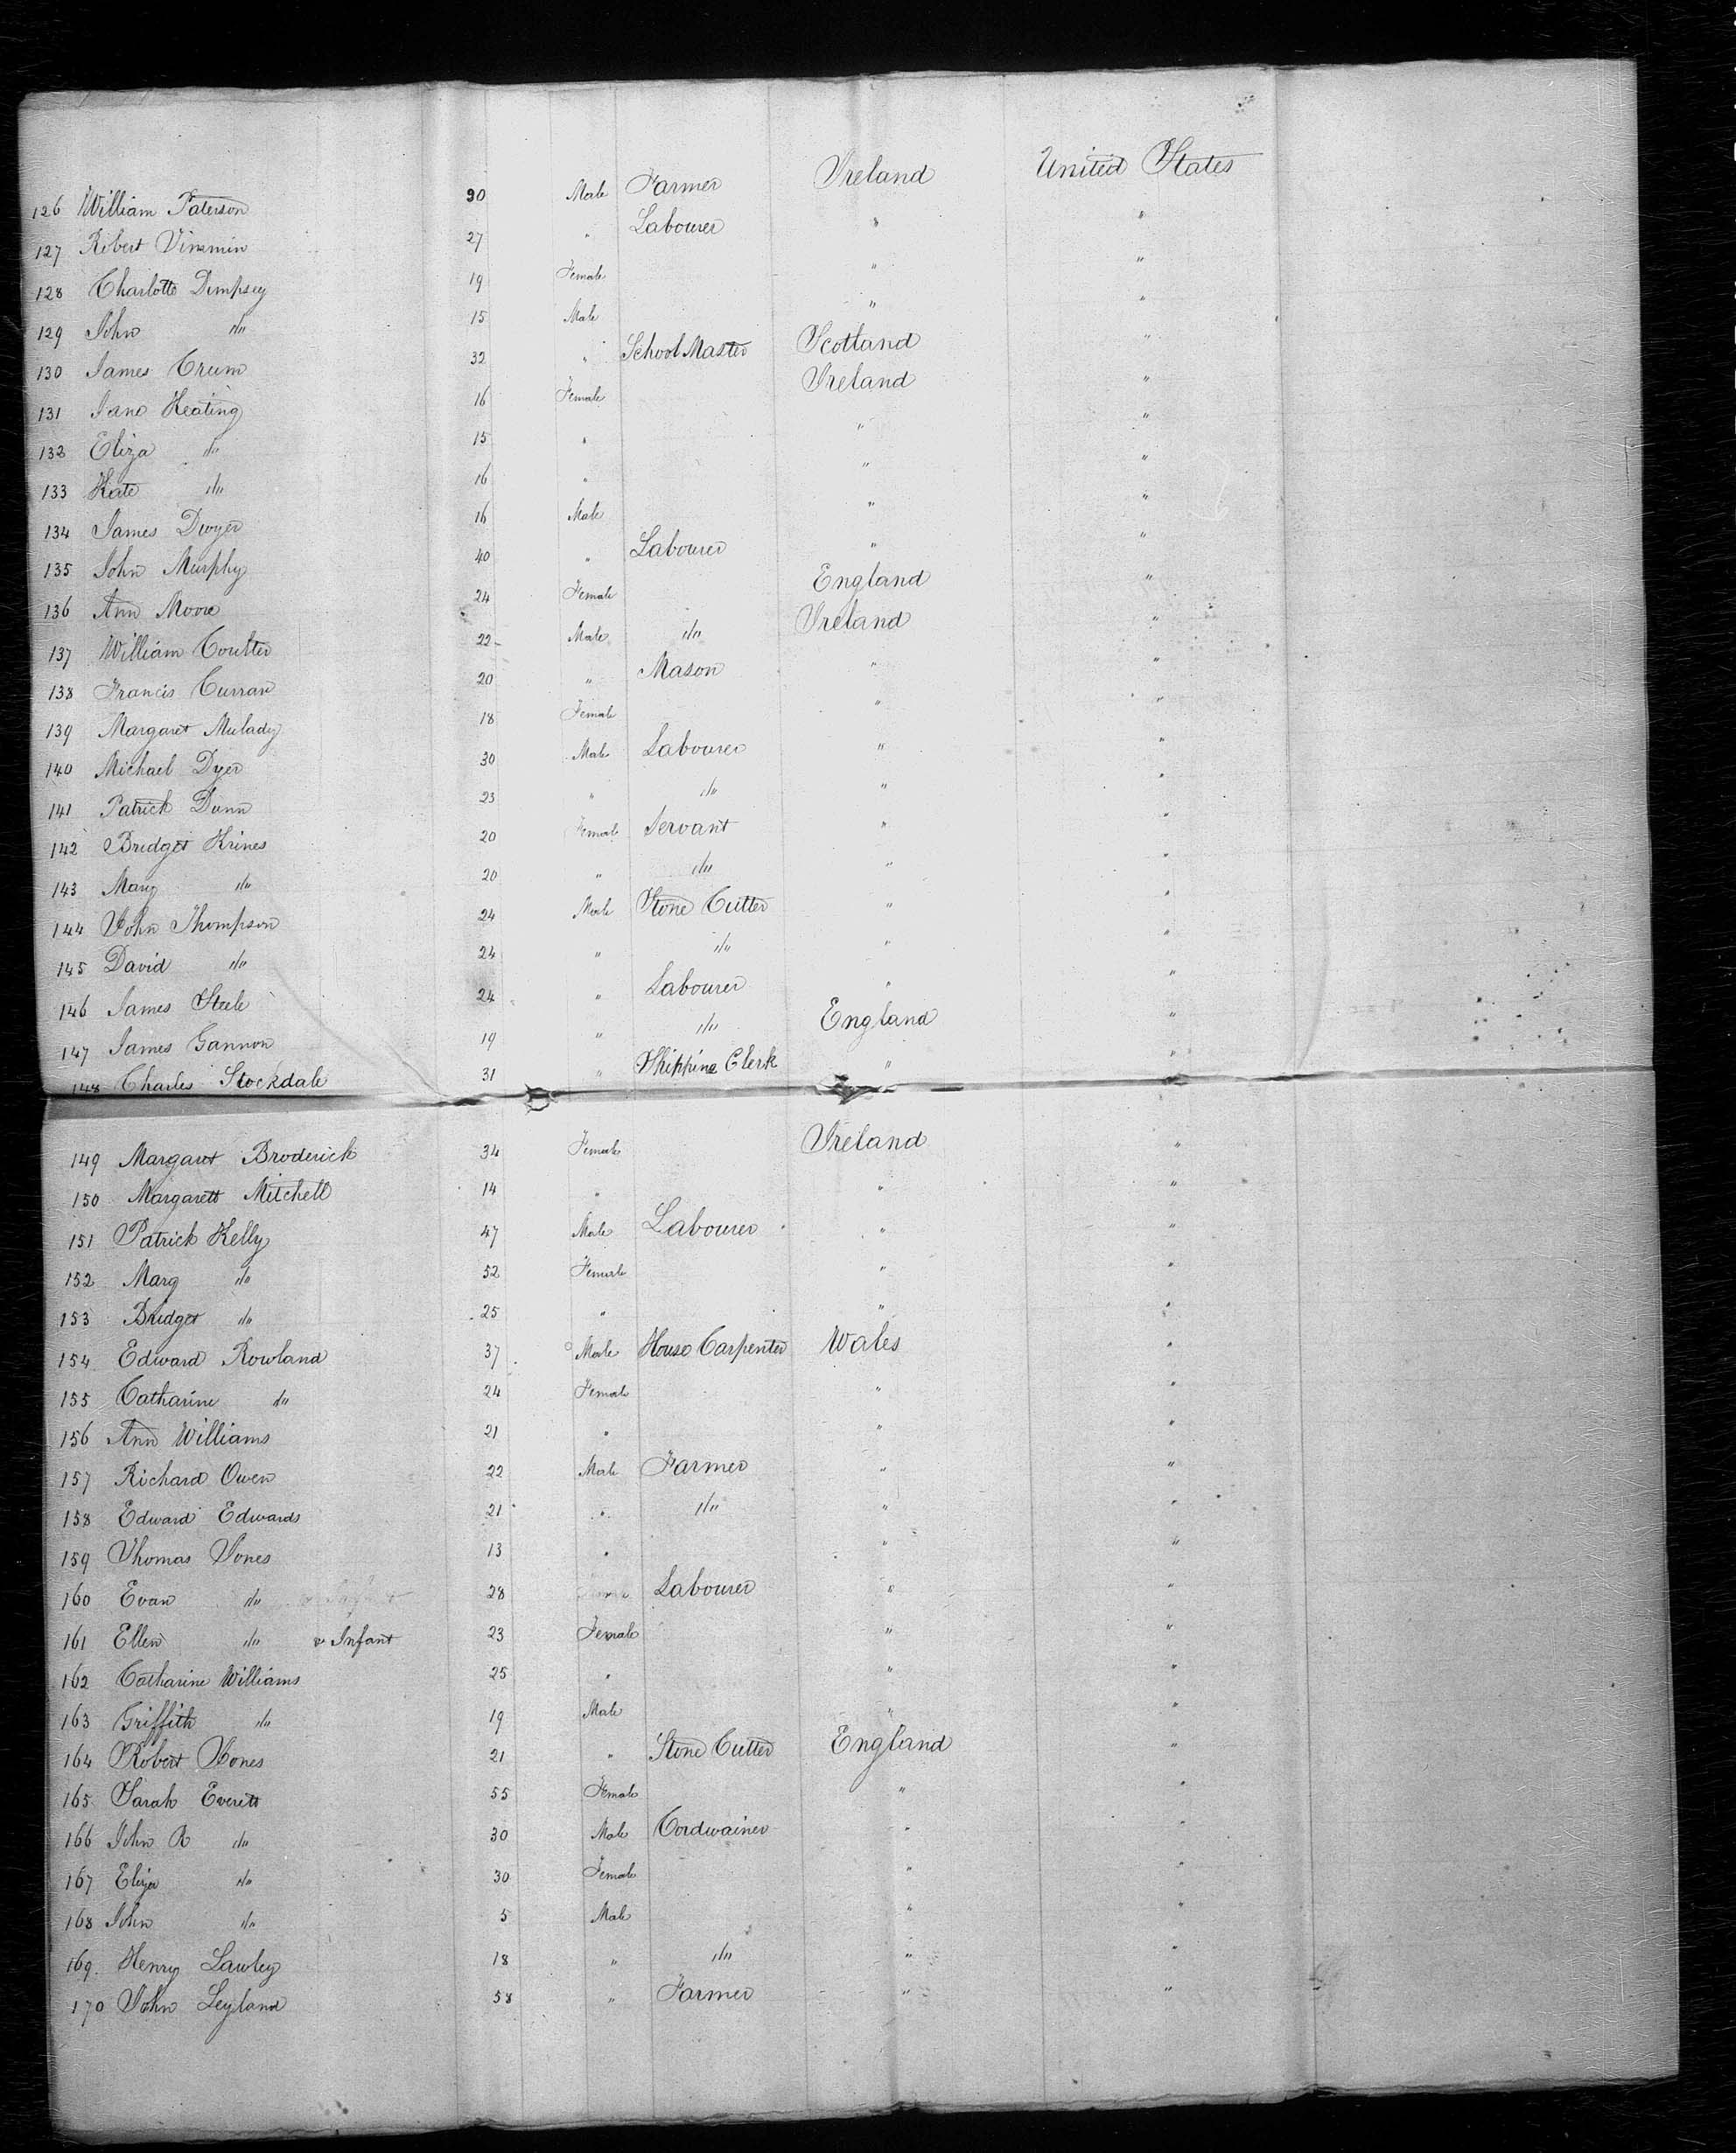 126 William Paterson 30 Male Farmer Ireland United States
127 Robert Vinsmin 27 " Labourer " "
128 Charlotte Dempsey 19 Female " "
129 John do 15 Male " "
130 James Crum 32 " School Master Scotland "
131 Jane Keating 16 Female Ireland "
132 Eliza do 15 " " "
133 Kate do 16 " " "
134 James Dwyer 16 Male " "
135 John Murphy 40 " Labourer " "
136 Ann Moore 24 Female England "
137 William Coulter 22 Male do Ireland "
138 Francis Curran 20 " Mason " "
139 Margaret Mulady 18 Female " "
140 Michael Dyer 30 Male Labourer " "
141 Patrick Dunn 23 " do " "
142 Bridget Krines 20 Female Servant " "
143 Mary do 20 " do " "
144 John Thompson 24 Male Stone Cutter " "
145 David do 24 " do " "
146 James Steele 24 " Labourer " "
147 James Gannon 19 " do England "
148 Charles Stockdale 31 " Shipping Clerk " "
149 Margaret Broderick 34 Female Ireland "
150 Margarett Mitchell 14 " " "
151 Patrick Kelly 47 Male Labourer " "
152 Mary do 52 Female " "
153 Bridget do 25 " " "
154 Edward Rowland 37 Male House Carpenter Wales "
155 Catharine do 24 Female " "
156 Ann Williams 21 " " "
157 Richard Owen 22 Male Farmer " "
158 Edward Edwards 21 " do " "
159 Thomas Jones 13 " " "
160 Evan do 28 Labourer " "
161 Ellen do & Infant 23 Female " "
162 Catharine Williams 25 " " "
163 Griffith do 19 Male " "
164 Robert Jones 21 " Stone Cutter England "
165 Sarah Everett 55 Female " "
166 John R do 30 Male Cordwainer " "
167 Eliza do 30 Female " "
168 John do 5 Male " "
169 Henry Lawley 18 " do " "
170 John Leyland 58 " Farmer " "